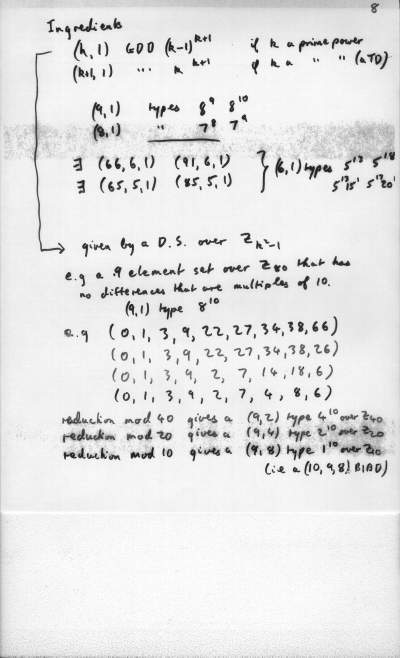 8
Ingredients
(k, 1) GDD (k-1)^{k+1} if k a prime power
(k+1, 1) " " k^{k+1} if k a " " (a TD)
(9,1) types 8^9 8^{10}
(8,1) " 7^8 7^9
∃ (66,6,1) (91,6,1) } (6,1) types 5^{13} 5^{18}
∃ (65,5,1) (85,5,1) 5^{13}15^1 5^{17}20^1
given by a D.S. over Z_{k²-1}
e.g a 9 element set over Z_{80} that has
no differences that are multiples of 10.
(9,1) type 8^{10}
e.g (0, 1, 3, 9, 22, 27, 34, 38, 66)
(0, 1, 3, 9, 22, 27, 34, 38, 26)
(0, 1, 3, 9, 2, 7, 14, 18, 6)
(0, 1, 3, 9, 2, 7, 4, 8, 6)
reduction mod 40 gives a (9,2) type 4^{10} over Z_{40}
reduction mod 20 gives a (9,4) type 2^{10} over Z_{20}
reduction mod 10 gives a (9,8) type 1^{10} over Z_{10}
(i.e a (10,9,8) BIBD)